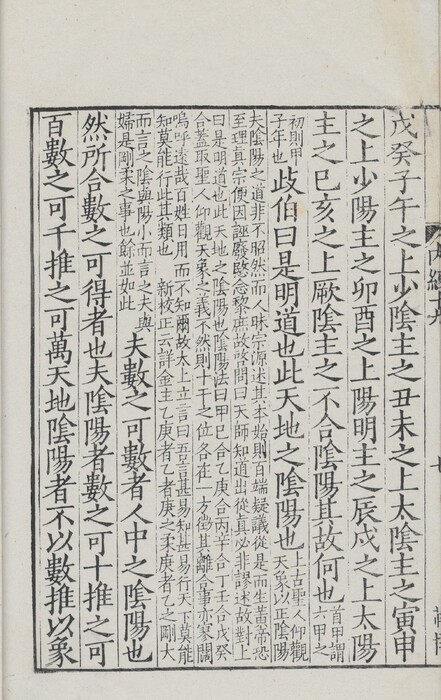 戊癸子午之上少陰主之丑未之上太陰主之寅申
之上少陽主之卯酉之上陽明主之辰戌之上太陽
主之巳亥之上厥陰主之不合陰陽其故何也
首甲謂
六甲之
初則甲
子年也
歧伯曰是明道也此天地之陰陽也
上古聖人仰觀
天象以正陰陽
夫陰陽之道非不昭然而人昧宗源述其本始則百端疑議從是而生黃帝恐
至理真宗便因誣廢愍念黎庶故啟問曰天師知道出從真必非謬述故對上
曰是明道也此天地之陰陽也陰陽法曰甲己合乙庚合丙辛合丁壬合戊癸
合蓋取聖人仰觀天象之義不然則十干之位各在一方徵其離合事亦寥闊
嗚呼遠哉百姓日用而不知爾故太上立言曰吾言甚易知甚易行天下莫能
知莫能行此其類也 新校正云詳金主乙庚者乙者庚之柔庚者乙之剛大
而言之陰與陽小而言之夫與
婦是剛柔之事也餘並如此
夫數之可數者人中之陰陽也
然所合數之可得者也夫陰陽者數之可十推之可
百數之可千推之可萬天地陰陽者不以數推以象